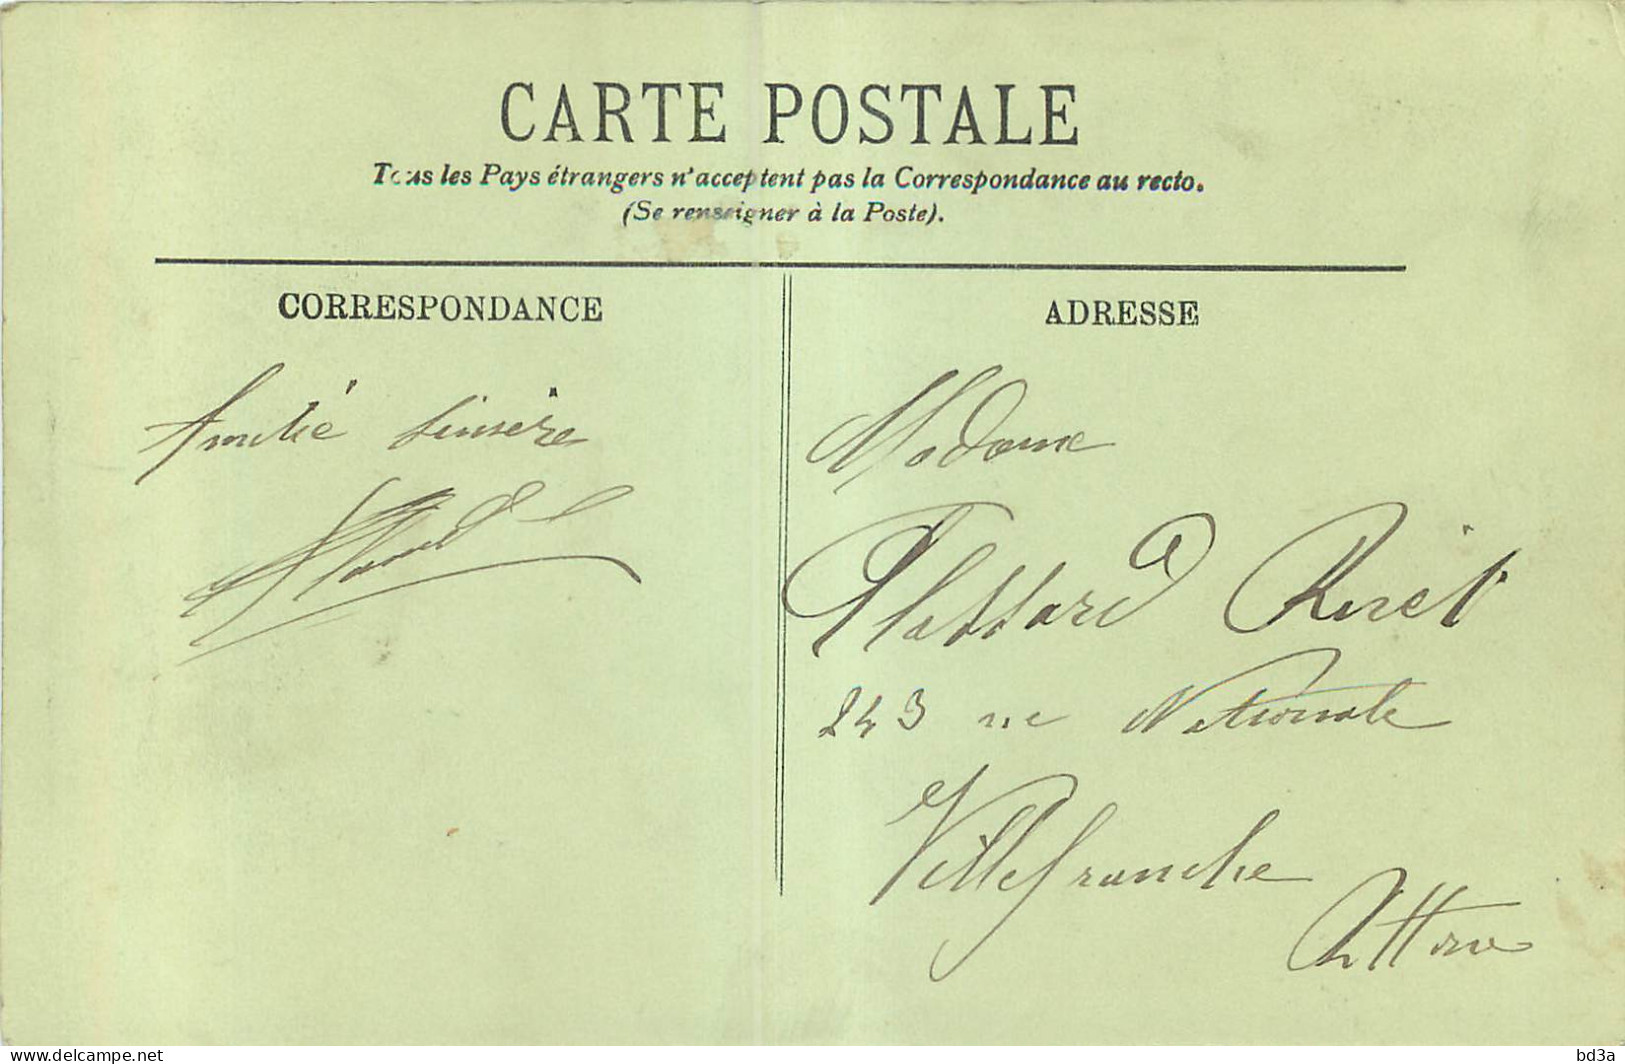 CARTE POSTALE
Tous les Pays étrangers n'acceptent pas la Correspondance au recto.
(Se renseigner à la Poste).
CORRESPONDANCE
Amitié sincère
ADRESSE
Madame
Plassard
243 rue Nationale
Villefranche
delcampe.net
bd3a